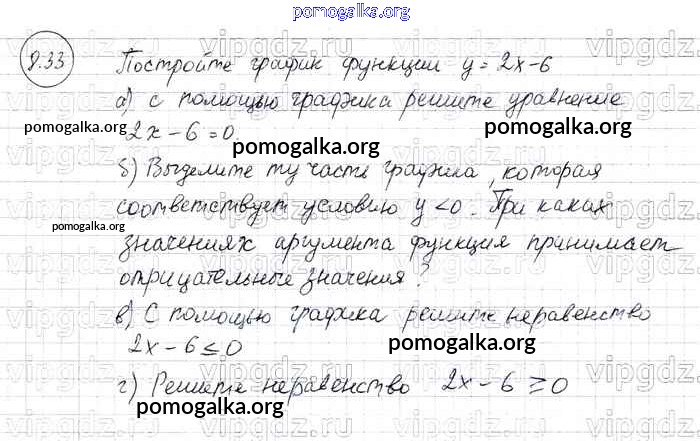 pomogalka.org
8.33 Постройте график функции y = 2x-6
а) с помощью графика решите уравнение
2x-6=0.
б) Выделите ту часть графика, которая
соответствует условию y<0. При каких
значениях аргумента функция принимает
отрицательные значения?
в) С помощью графика решите неравенство
2x-6≤0
г) Решите неравенство 2x-6≥0
pomogalka.org
pomogalka.org
pomogalka.org
pomogalka.org
pomogalka.org
pomogalka.org
pomogalka.org
vipgdz